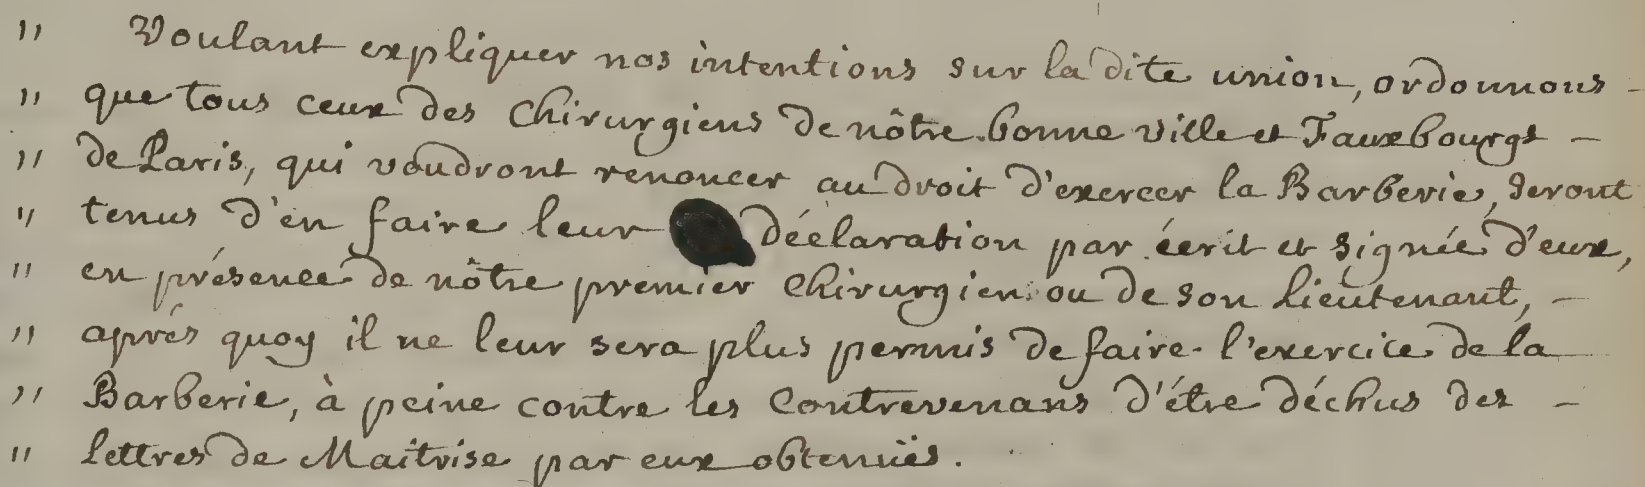 " Voulant expliquer nos intentions sur la dite union, ordonnons -
" que tous ceux des Chirurgiens de nôtre bonne ville et Fauxbourgs -
" de Paris, qui voudront renoncer au droit d'exercer la Barberie, seront
" tenus d'en faire leur déclaration par écrit et signée d'eux,
" en présence de nôtre premier Chirurgien ou de son Lieutenant, -
" aprés quoy il ne leur sera plus permis de faire l'exercice de la
" Barberie, à peine contre les Contrevenans d'étre déchus des -
" Lettres de Maitrise par eux obtenuës.